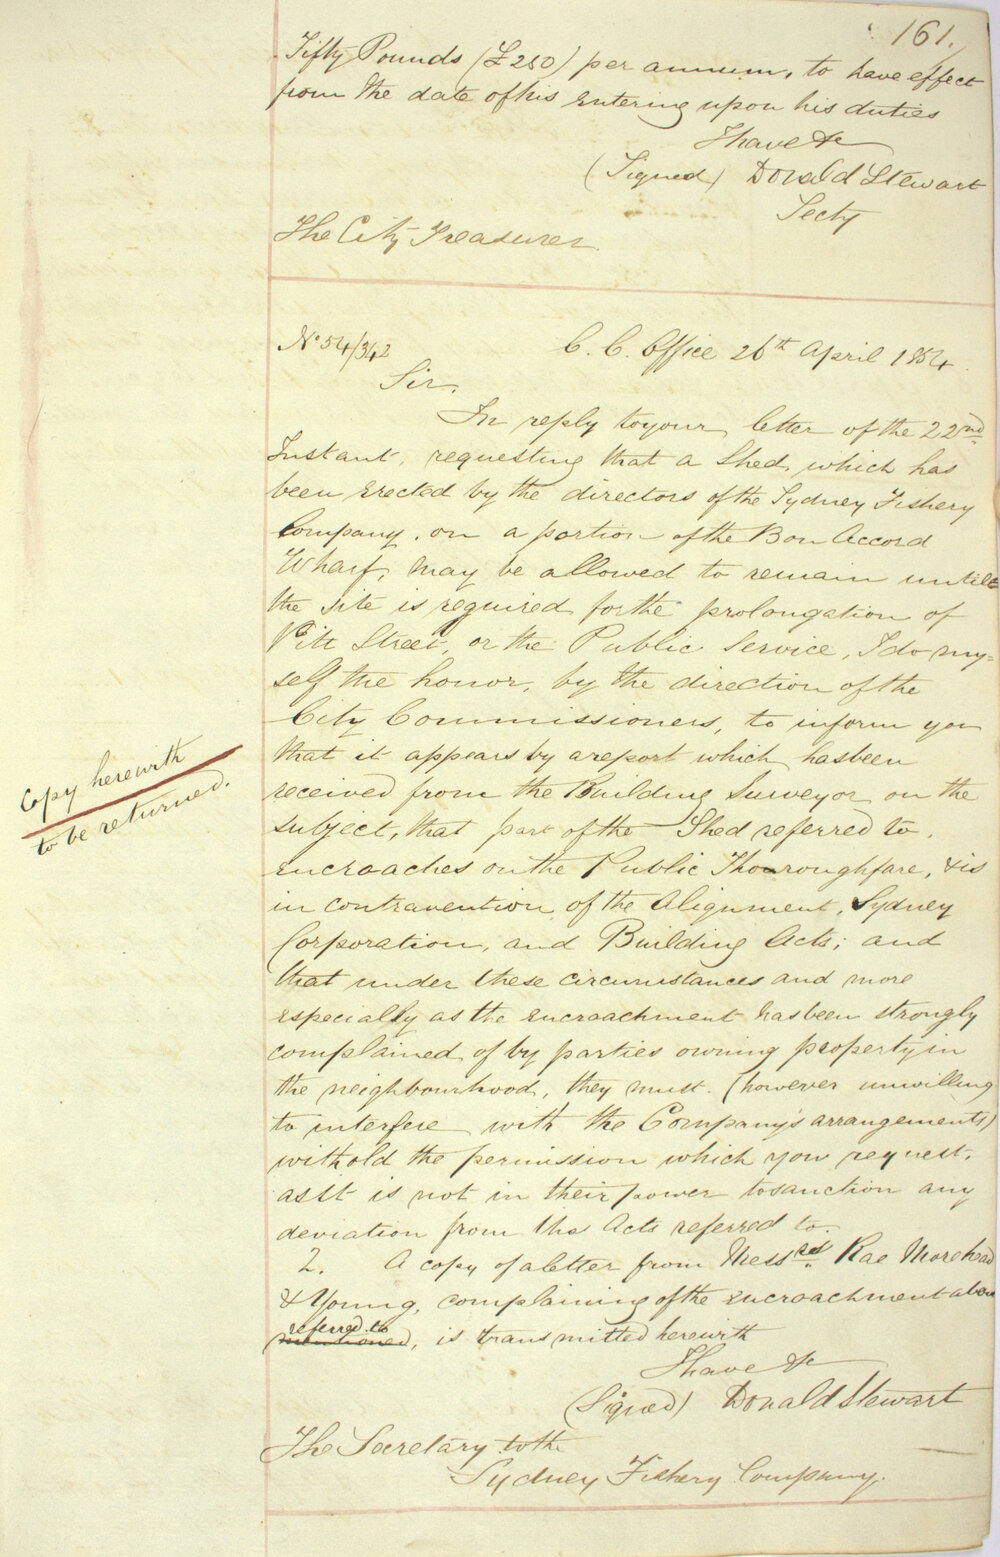 161.
Fifty Pounds (£250) per annum, to have effect
from the date of his entering upon his duties
I have &c
(Signed) Donald Stewart
Secty
The City Treasurer.
No 54/342
C. C. Office 26th April 1854.
Sir,
In reply to your letter of the 22nd
Instant, requesting that a Shed, which has
been erected by the directors of the Sydney Fishery
Company, on a portion of the Bon Accord
Wharf, may be allowed to remain untill
the site is required for the prolongation of
Pitt Street, or the Public Service, I do my-
self the honor, by the direction of the
City Commissioners, to inform you
that it appears by a report which has been
received from the Building Surveyor on the
subject, that part of the Shed referred to,
encroaches on the Public Thoroughfare, & is
in contravention of the Alignment, Sydney
Corporation, and Building Acts; and
that under these circumstances and more
especially as the encroachment has been strongly
complained of by parties owning property in
the neighbourhood, they must (however unwilling
to interfere with the Company's arrangements)
withold the permission which you request,
as it is not in their power to sanction any
deviation from the Acts referred to.
2. A copy of a letter from Messrs. Rae Morehead
& Young, complaining of the encroachment above
referred to
mentioned, is transmitted herewith
I have &c
(Signed) Donald Stewart
The Secretary to the
Sydney Fishery Company.
Copy herewith
to be returned.